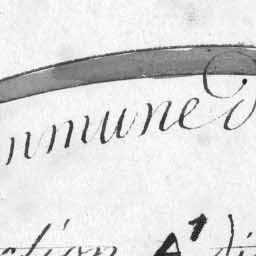 ommune d
ction A1 di